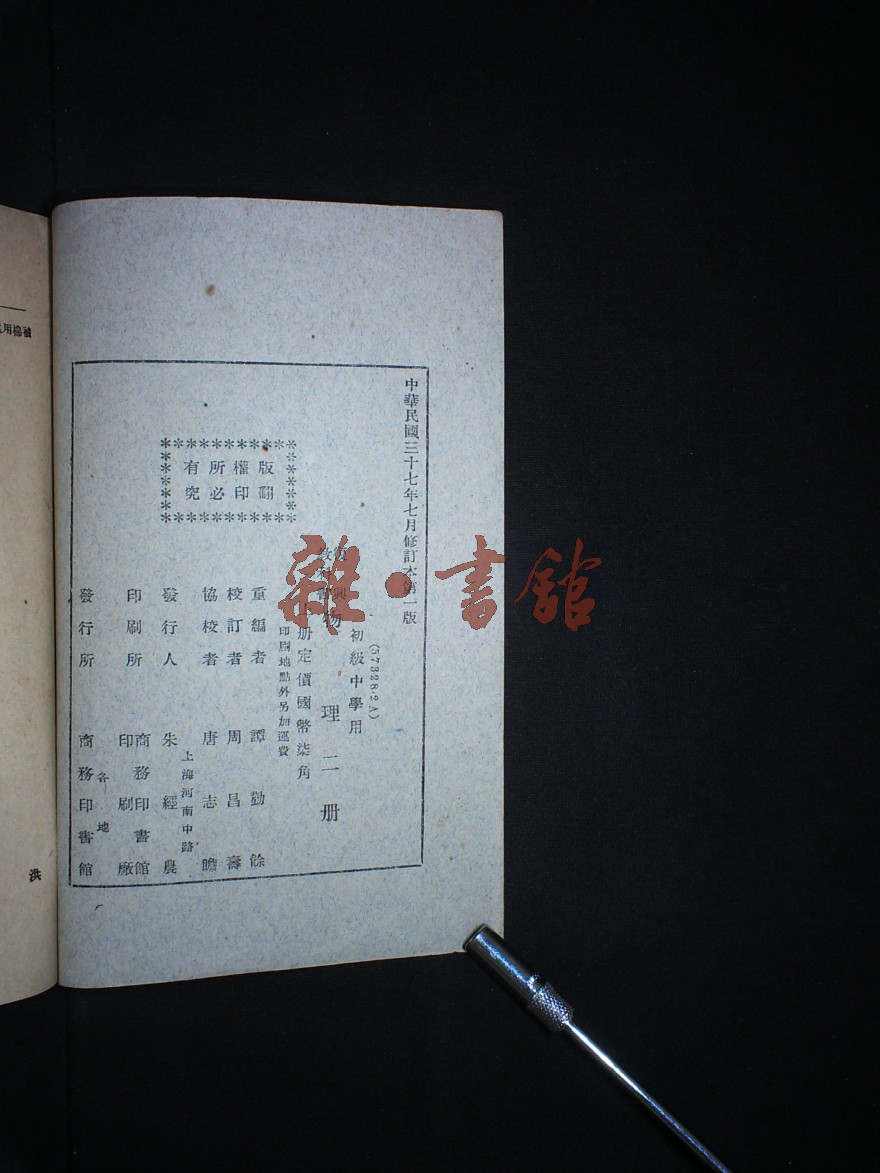 中華民國三十七年七月修訂本第一版
(57328·2A)
初級中學用
復興
教科書
物理二册
上册定價國幣柒角
印刷地點外另加運費
版權所有
翻印必究
重編者 譚勤餘
校訂者 周昌壽
協校者 唐志瞻
上海河南中路
發行人 朱經農
印刷所 商務印書館
印刷廠
各地
發行所 商務印書館
雜·書館
洪